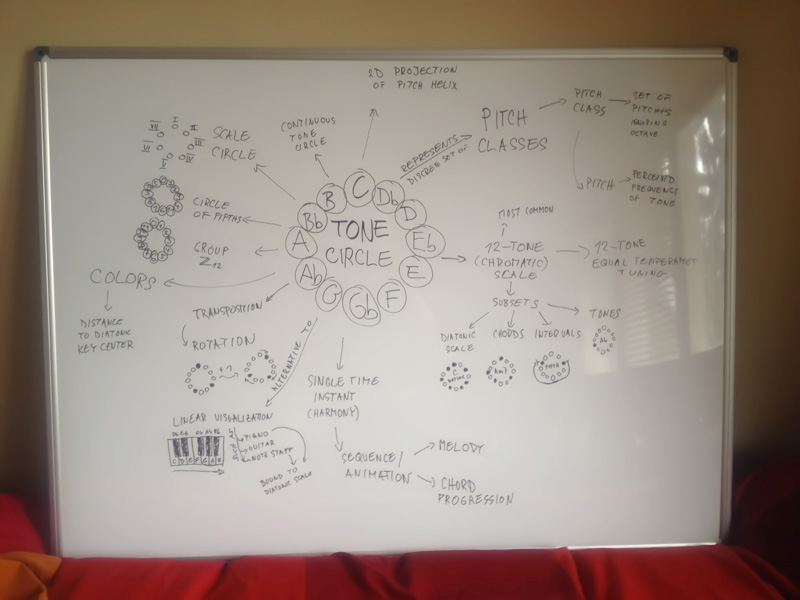 2D PROJECTION
OF PITCH HELIX
CONTINUOUS
TONE
CIRCLE
SCALE
CIRCLE
I
II
III
V
VI
VII
REPRESENTS
DISCRETE SET OF
PITCH
CLASSES
PITCH
CLASS
SET OF
PITCHES
IGNORING
OCTAVE
PITCH
PERCEIVED
FREQUENCY
OF TONE
TONE
CIRCLE
C
Db
D
Eb
E
F
Gb
G
Ab
A
Bb
B
CIRCLE
OF FIFTHS
GROUP
Z12
COLORS
DISTANCE
TO DIATONIC
KEY CENTER
MOST COMMON
12-TONE
(CHROMATIC)
SCALE
12-TONE
EQUAL TEMPERAMET
TUNING
SUBSETS
DIATONIC
SCALE
CHORDS
INTERVALS
TONES
Ab
TRANSPOSITION
ROTATION
+7
ALTERNATIVE TO
LINEAR VISUALIZATION
C D E F G A B
SUCH AS
PIANO
GUITAR
NOTE STAFF
BOUND TO
DIATONIC SCALE
SINGLE TIME
INSTANT
(HARMONY)
SEQUENCE/
ANIMATION
MELODY
CHORD
PROGRESSION